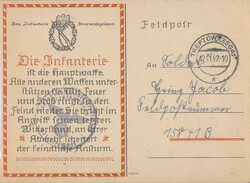 Das Infanterie Sturmabzeichen
Die Infanterie
ist die Hauptwaffe.
Alle anderen Waffen unter-
stützen sie. Mit Feuer
und Stoß ringt sie den
Feind nieder. Sie bricht im
Angriff seinen letzten
Widerstand, an ihrer
Abwehr scheitert
der feindliche Ansturm.
Feldpost
TREPTOW (REGA)
An Soldat
Jacob
Feldpostnummer